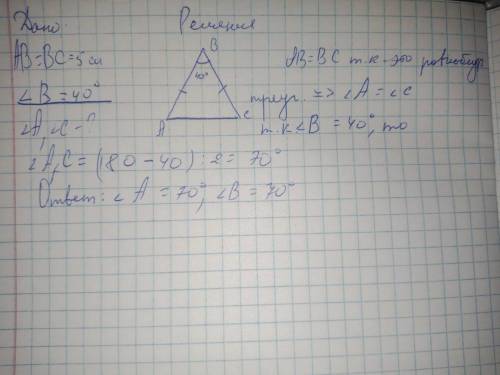 Дано:
Решения
AB=BC=5см
∠B=40°
∠A, ∠C-?
B
40°
A
C
AB=BC т.к-это равнобедр.
треуг. => ∠A=∠C
т.к ∠B = 40°, то
∠A,C = (180-40):2= 70°
Ответ: ∠A=70°, ∠B=70°